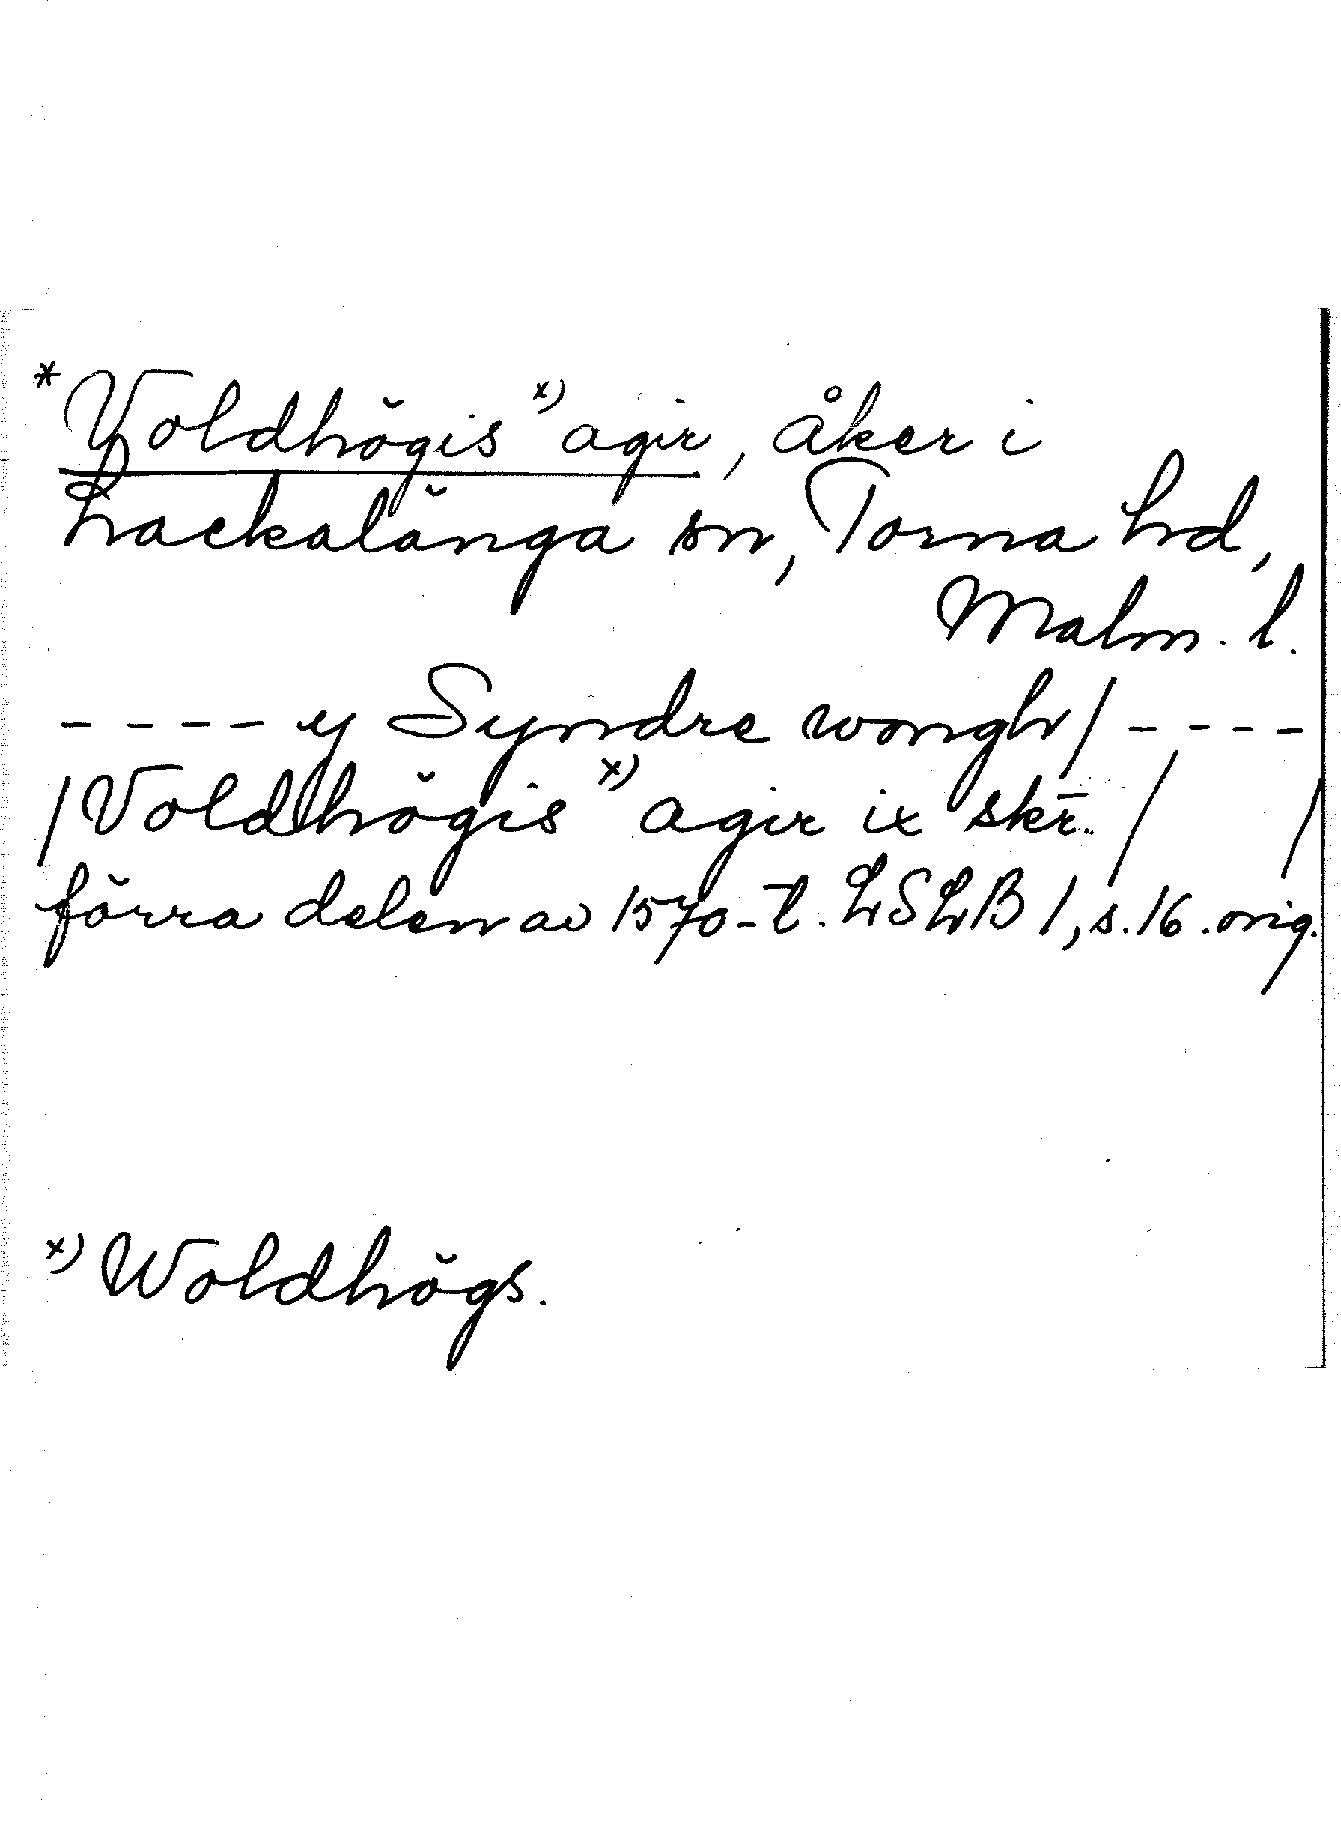 *Voldhögis x) agir, åker i
Lackalänga sn, Torna hd,
Malm. l.
- - - - y Syndre wongh/ - - - -
/Voldhögis x) agir ix skr̄../ /
förra delen av 1570-t. LSLB 1, s. 16. orig.
x) Woldhögs.